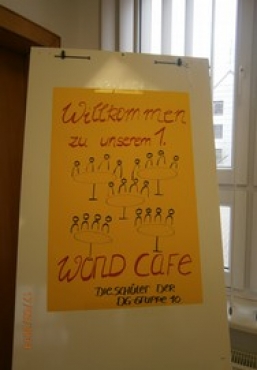 Willkommen
zu unserem 1.
WORLD CAFE
DIE SCHÜLER DER
DG GRUPPE 10